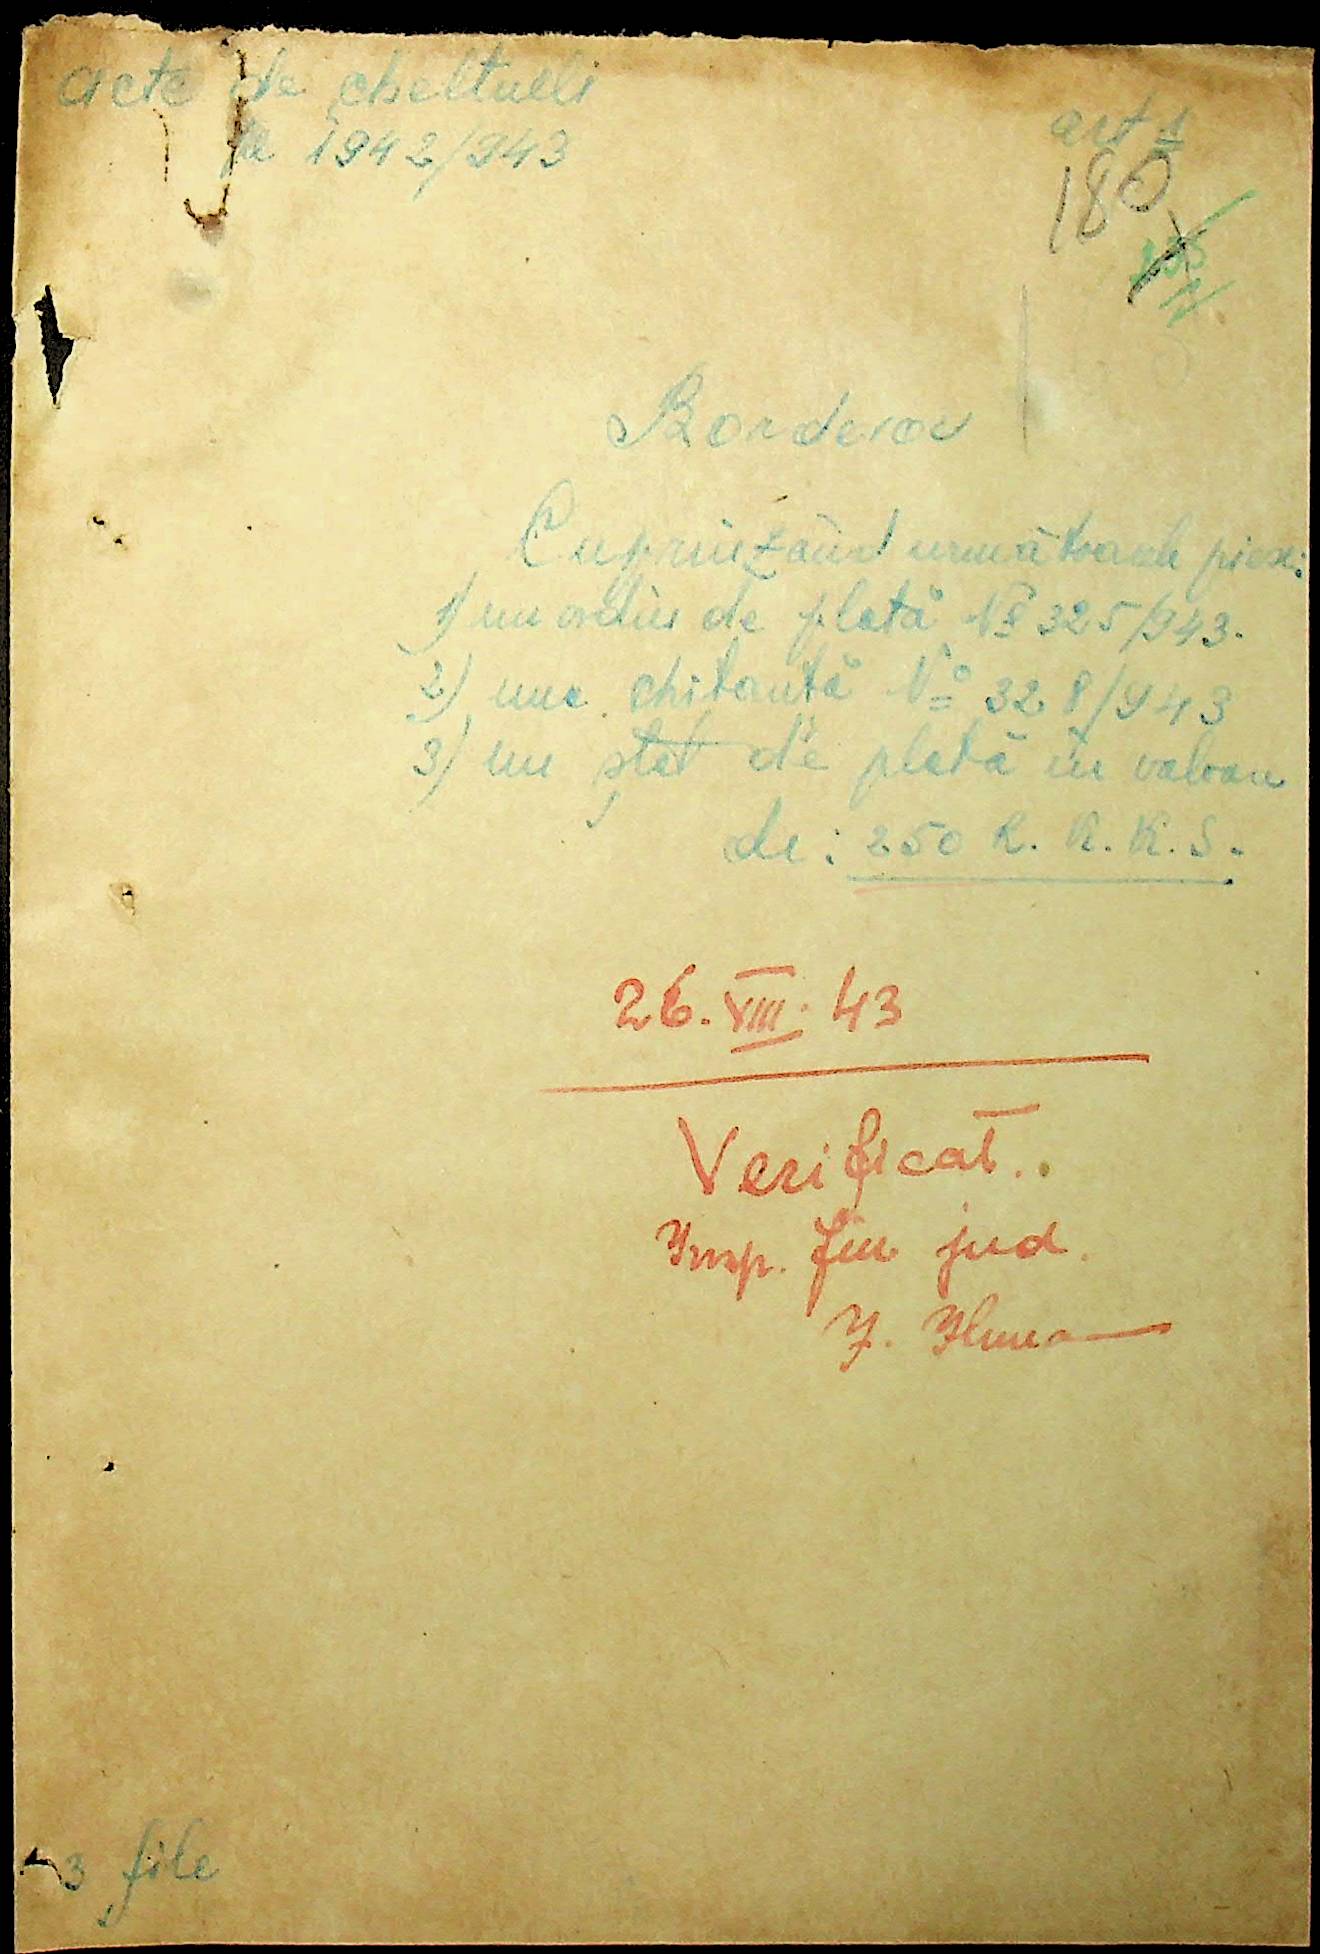 acte de cheltueli
pe 1942/943
art 1
180
Borderou
Cuprinzând următoarele piese:
1) un ordin de plată № 325/943.
2) una chitanță № 328/943
3) un ștat de plată în valoare
de: 250 R. K. K. S.
26. VIII. 43
Verificat.
Insp. fin jud.
3 file